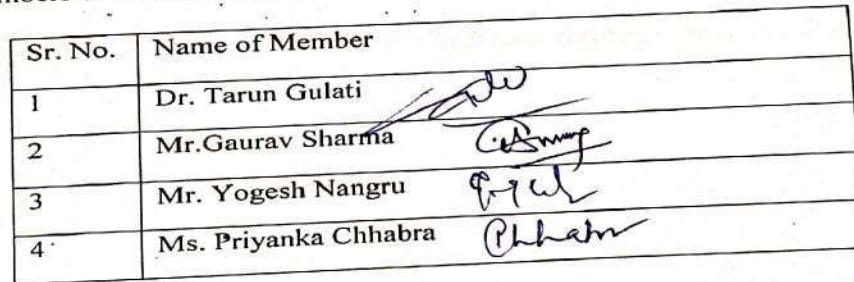 Sr. No. Name of Member
1 Dr. Tarun Gulati
2 Mr.Gaurav Sharma
3 Mr. Yogesh Nangru
4 Ms. Priyanka Chhabra